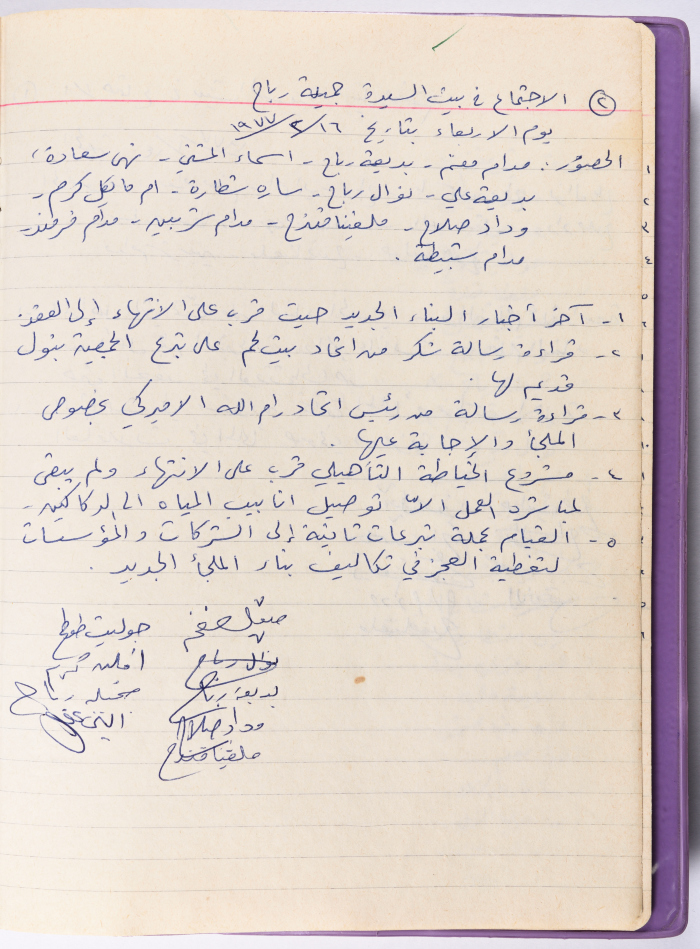 ٢ الاجتماع في بيت السيدة جميلة رباح
يوم الاربعاء بتاريخ ١٦/٢/١٩٧٧
الحضور: مدام مغنم - بديعة رباح - اسماء المثني - نهى سعادة،
بديعة علي - نوال رباح - ساره شطارة - ام مايكل كرم -
وداد صلاح - ملفينا قندح - مدام شربين - مدام فرمند -
مدام شبيطة .
١- آخر أخبار البناء الجديد حيث قرب على الانتهاء إلى العقد.
٢- قراءة رسالة شكر من اتحاد بيت لحم على تبرع الجمعية بنول
قديم لها .
٣- قراءة رسالة من رئيس اتحاد رام الله الاميركي بخصوص
الملجأ والإجابة عليها .
٤- مشروع الخياطة التأهيلي قرب على الانتهاء ولم يبقى
لمباشرة العمل الاّ توصيل انابيب المياه الى الدكاكين -
٥- القيام بحملة تبرعات ثانية إلى الشركات والمؤسسات
لتغطية العجز في تكاليف بناء الملجأ الجديد .
جوليت طوطح
نوال رباح كرم
بديعة رباح جميلة رباح
وداد صلاح
ملفينا قندح